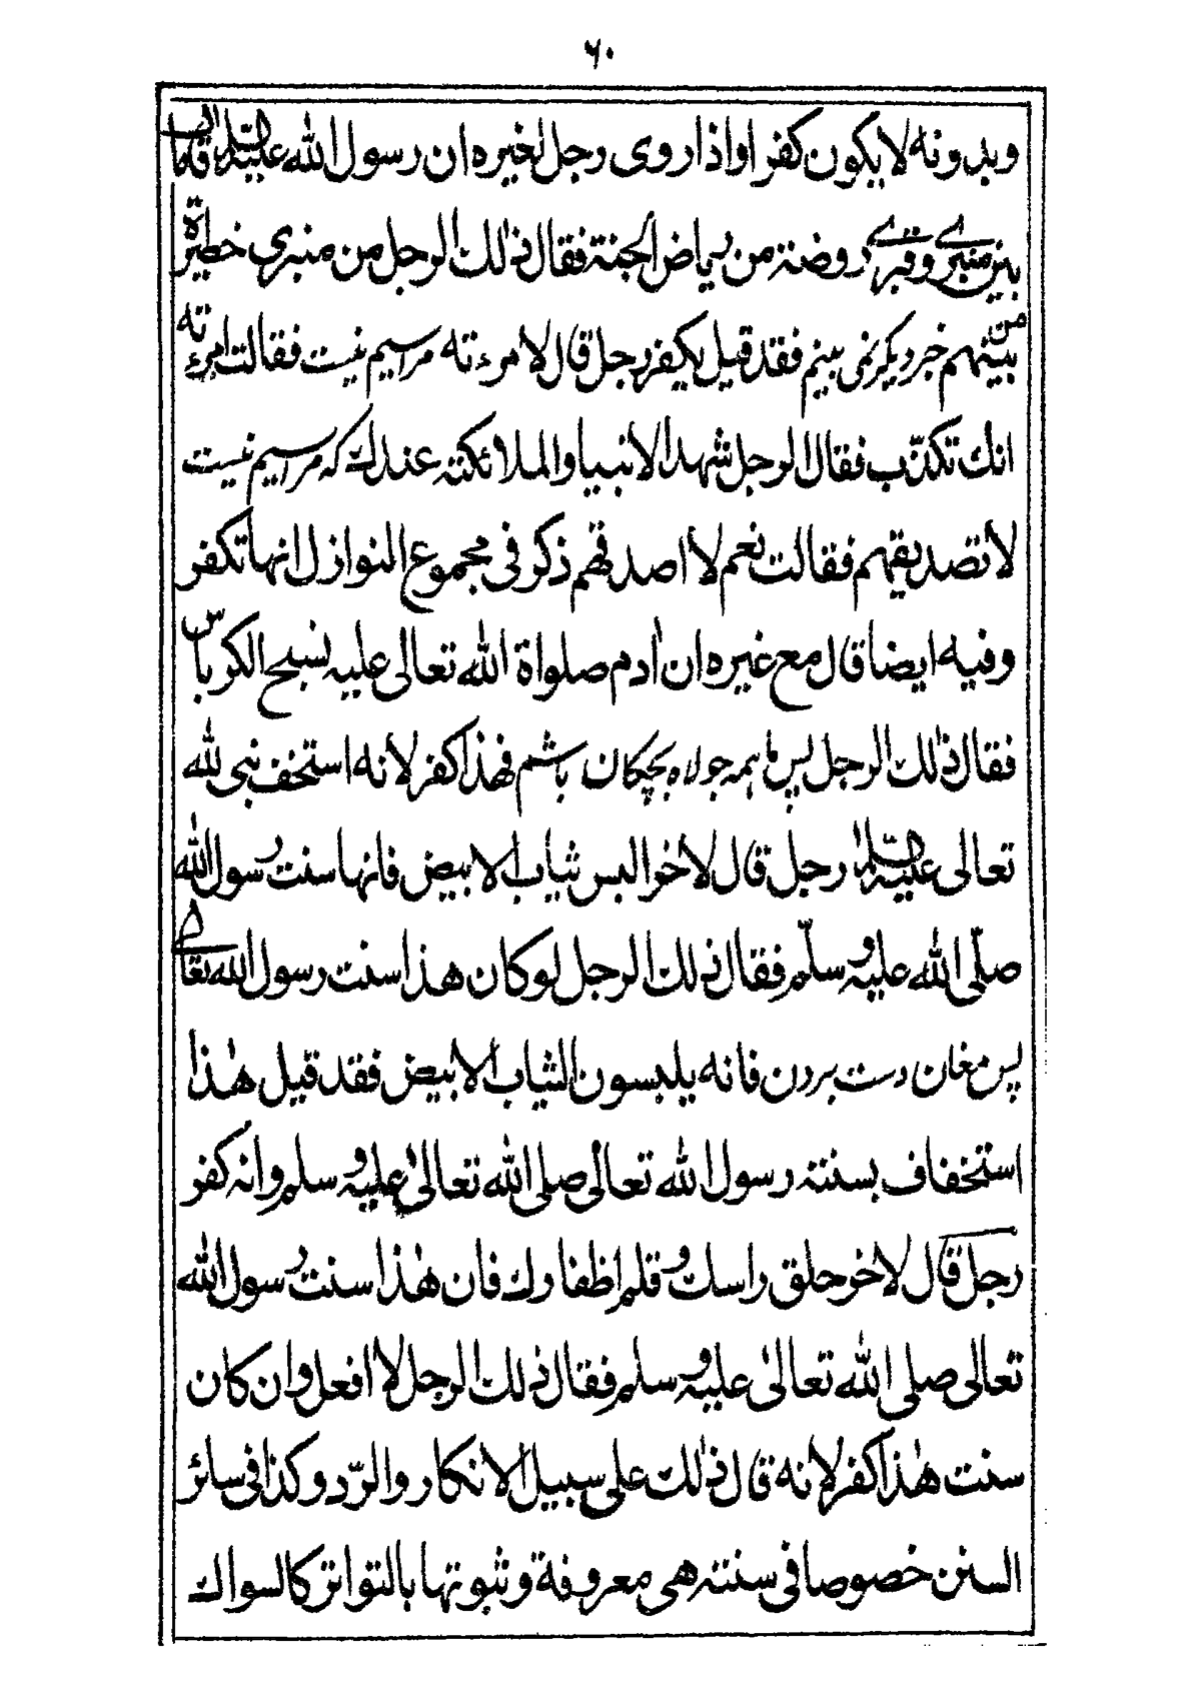 ٦٠
وبدونه لا يكون كفرا واذا روى رجل لغيره ان رسول الله عليه السلام قال ما
بين منبرى وقبرى روضة من رياض الجنة فقال ذلك الرجل من منبرى خطيرة
بينهم خرد ديگر نمى بينم فقد قيل يكفر رجل قال لامرءته مراسيم نيست فقالت امرءته
انك تكذّب فقال الرجل شهد الانبيا والملائكة عندك كه مراسيم نيست
لا تصديقهم فقالت نعم لا اصدقهم ذكر فى مجموع النوازل انها تكفر
وفيه ايضا قال مع غيره ان اٰدم صلواة الله تعالى عليه نسبح الكرباس
فقال ذلك الرجل پس ما همه جولاه بچكان باشم فهذا كفر لانه استخف نبى لله
تعالى عليه السلام رجل قال لاخر البس ثياب الابيض فانها سنت رسول الله
صلّى الله عليه وسلّم فقال ذلك الرجل لو كان هذا سنت رسول الله تعالى
پس مغان دست بردن فانه يلبسون الثياب الابيض فقد قيل هٰذا
استخفاف بسنته رسول الله تعالى صلى الله تعالىٰ عليه وسلم وانه كفر
رجل قال لاخر حلق راسك وقلم اظفارك فان هٰذا سنت رسول الله
تعالى صلى الله تعالىٰ عليه وسلم فقال ذلك الرجل لا افعل وان كان
سنت هٰذا كفر لانه قال ذٰلك على سبيل الانكار والرّد وكذا فى سائر
السنن خصوصا فى سنته هى معروفة وثبوتها بالتواتر كالسواك